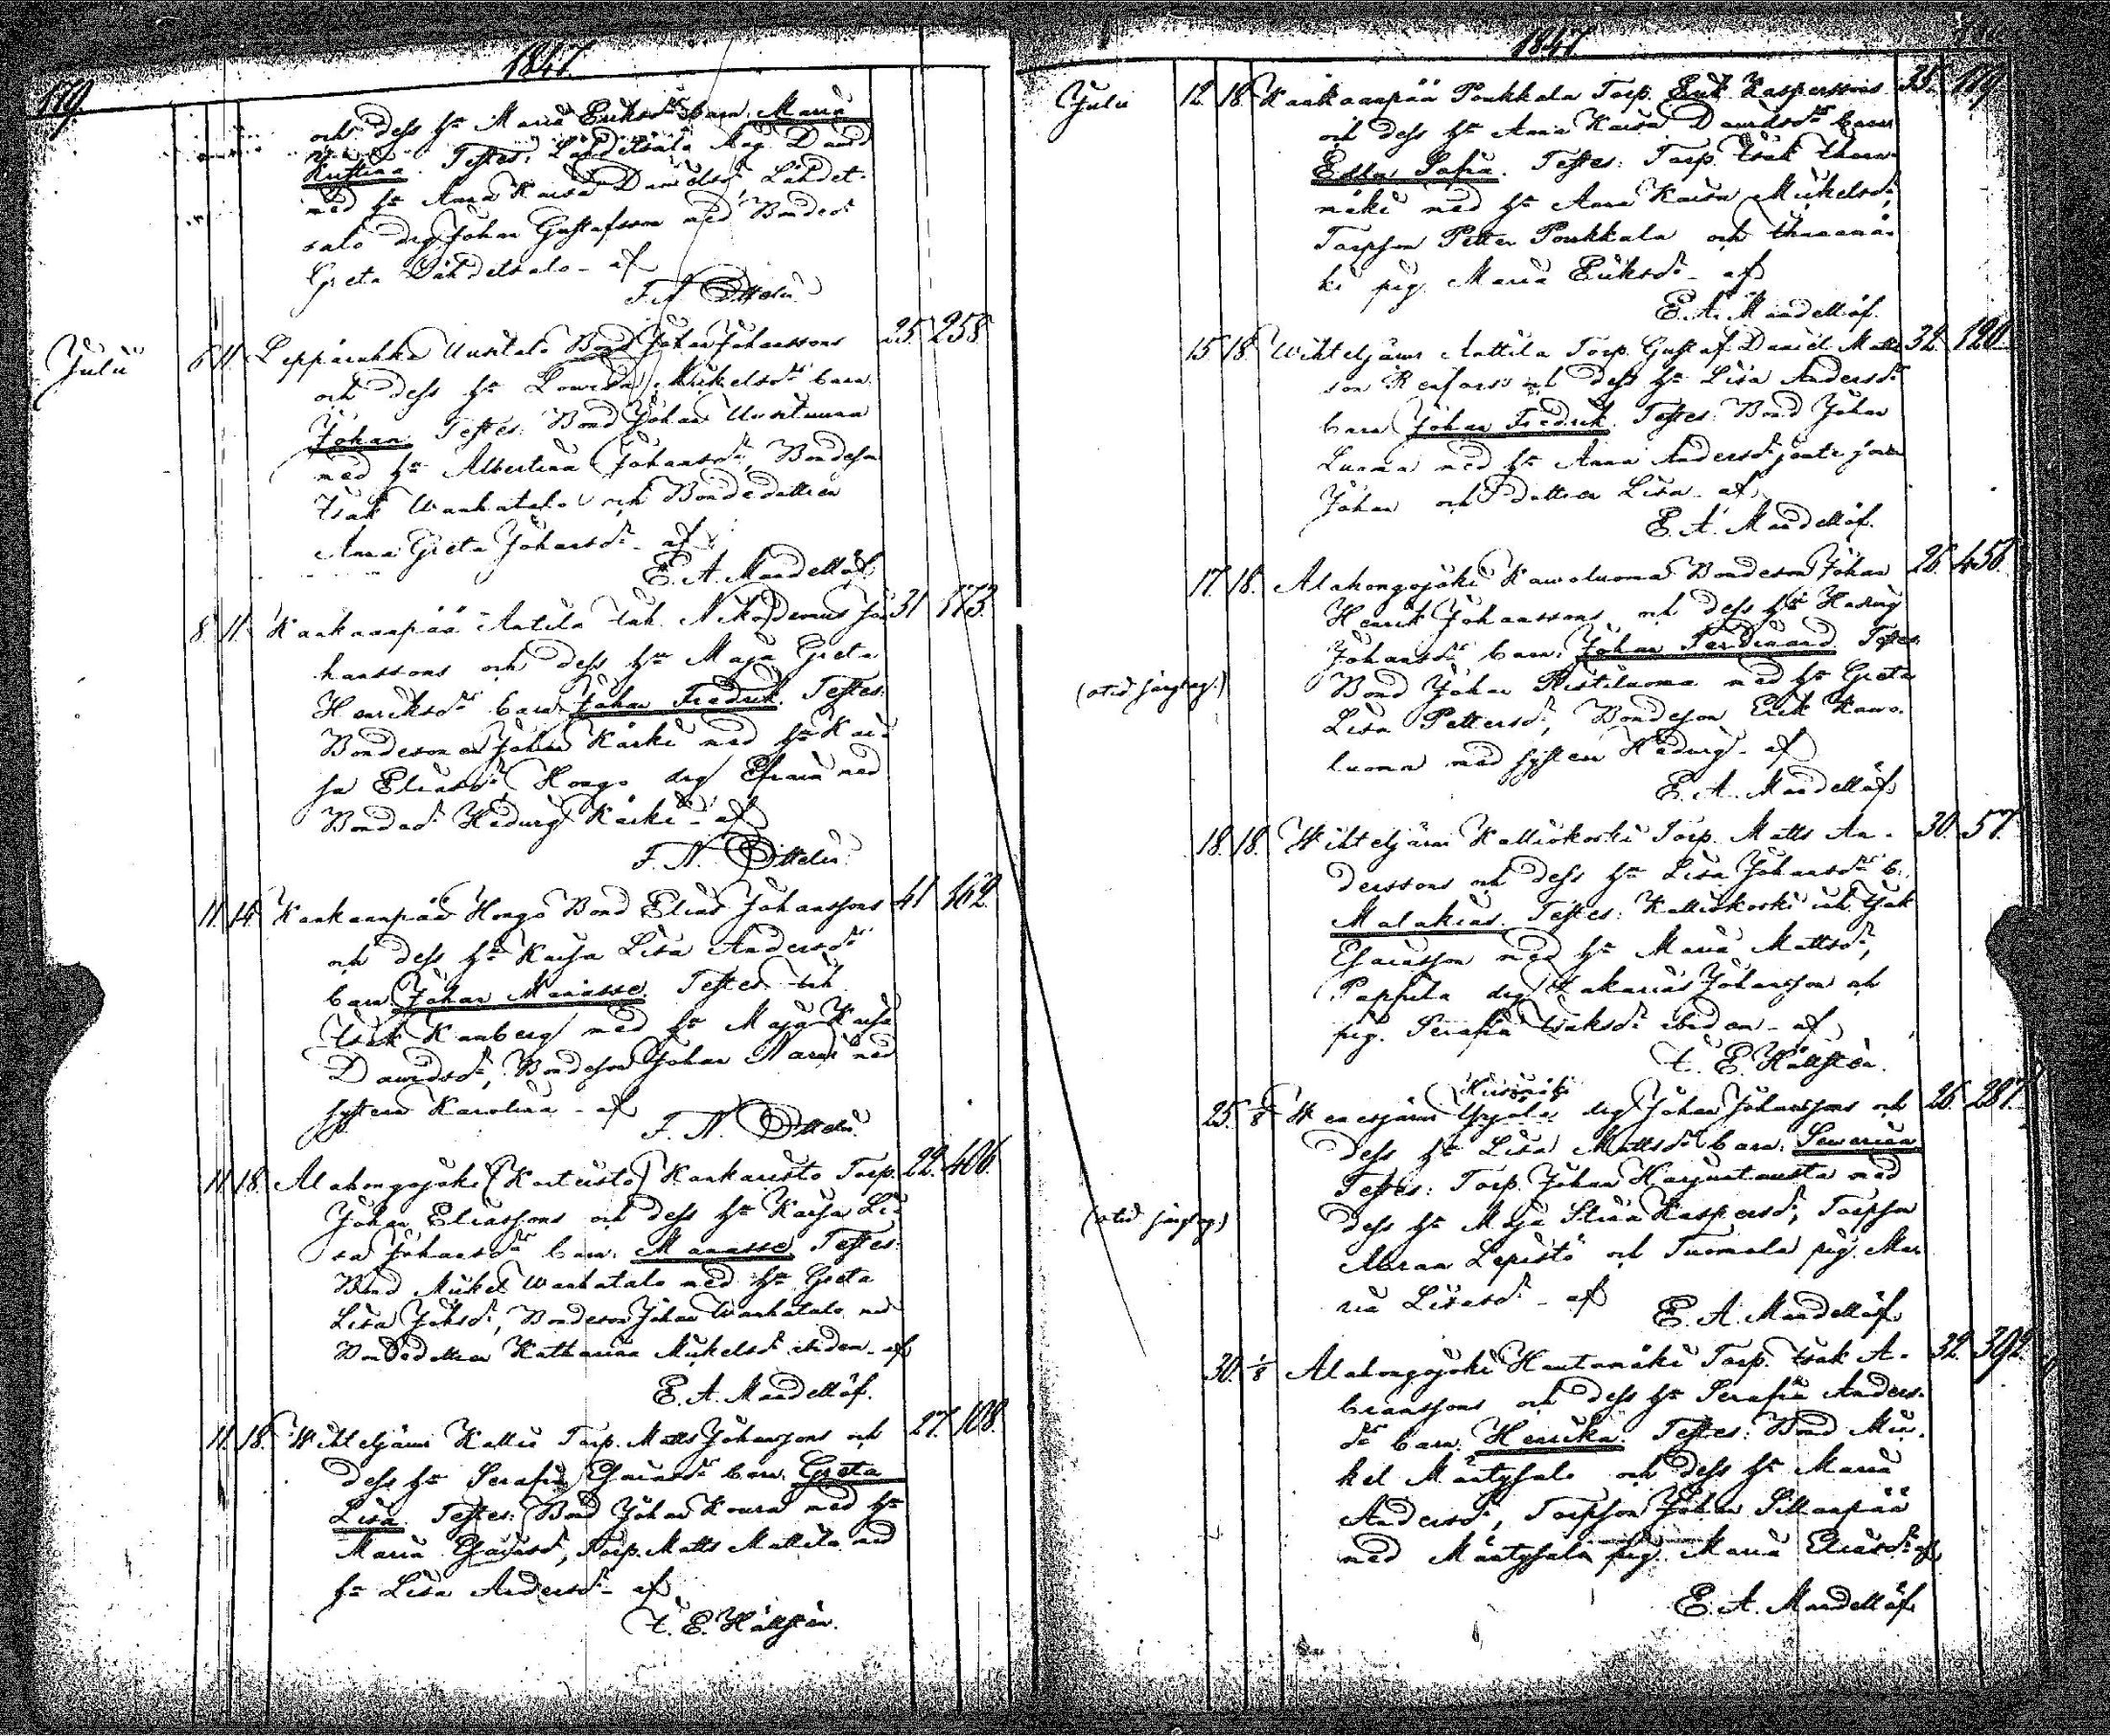 179
1847.
och dess h:u Maria Eriksd:rs barn: Maria
Kristina. Testes: Lähdetsalo Måg David
med h:u Anna Kaisa Danielsd:r, Lähdet-
salo drg Johan Gustafsson med Bonded:r
Greta Lähdetsalo - af
F. N. Ottelin.
Julii 6 11. Leppärahka Uusitalo Bond Johan Johanssons 25. 258.
och dess h:u Lovisa Mickelsd:rs barn
Johan. Testes: Bond Johan Uusituuna
med h:u Albertina Johansd:r, Bondeson
Isak Wanhatalo och Bondedottren
Anna Greta Johansd:r - af
E. A. Mandellöf.
8 11. Kankaanpää Antila Inh. Nikodemus Jo- 31 173.
hanssons och dess h:u Maja Greta
Henriksd:rs barn Johan Fredrik. Testes:
Bondesonen Johan Kärki med h:u Kai-
sa Eliasd:r, Hongo drg Efraim med
Bonded:r Hedvig Kärki - af
F. N. Ottelin.
11. 14 Kankaanpää Hongo Bond Elias Johanssons 41 162.
och dess h:u Kaisa Lisa Andersd:rs
barn Johan Manasse. Testes Inh.
Isak Kanberg med h:u Maja Kaisa
Davidsd:r, Bondeson Johan Narvi med
systern Karolina - af
F. N. Ottelin.
11 18. Alahongojoki (Korteisto) Kankaristo Torp. 22. 406.
Johan Eliassons och dess h:u Kaisa Li-
sa Johansd:rs barn: Manasse. Testes:
Bond Mickel Wanhatalo med h:u Greta
Lisa Johsd:r, Bondeson Johan Wanhatalo med
Bondedottren Katharina Mickelsd:r ibidem - af
E. A. Mandellöf.
11. 18. Wihteljärvi Kallio Torp. Matts Johanssons och 27. 108.
dess h:u Serafia Esaiasd:rs barn: Greta
Lisa. Testes: Bond Johan Koura med h:u
Maria Esaiasd:r, Torp. Matts Mattila med
h:u Lisa Andersd:r - af
I. E. Hällsten.
1847.
Julii 12. 18. Kankaanpää Poukkala Torp. Erik Kasperssons 38. 119.
och dess h:u Anna Kaisa Davidsd:rs barn
Edla Sofia. Testes: Torp. Isak
mäki med h:u Anna Kaisa Mickelsd:r,
Torpson Petter Poukkala och
ki pig. Maria Eriksd:r - af
E. A. Mandellöf.
15 18. Wihteljärvi Anttila Torp. Gustaf Daniel Matts- 32. 120.
son Renfors och dess h:u Lisa Andersd:rs
barn Johan Fredrik. Testes: Bond Johan
Luoma med h:u Anna Andersd:r jemte sonen
Johan och dottren Lisa - af
E. A. Mandellöf.
17 18. Alahongojoki Kawoluoma Bondeson Johan 26. 456.
Henrik Johanssons och dess h:u Hedvig
Johansd:rs barn: Johan Ferdinand. Testes:
Bond Johan Ristiluoma med h:u Greta
Lisa Pettersd:r, Bondeson Erik Kawo-
luoma med systern Hedvig - af
E. A. Mandellöf.
18. 18. Wihteljärvi Kalliokoski Torp. Matts An- 30. 57.
derssons och dess h:u Lisa Johansd:rs b.
Malakias. Testes: Kalliokoski inh. Isak
Esaiasson med h:u Maria Mattsd:r,
drg Zakarias Johansson och
pig. Serafia Isaksd:r ibidem - af
I. E. Hällsten.
25. 1/8 Yrjälä drg Johan Johanssons och 26. 287.
dess h:u Lisa Mattsd:rs barn: Severina
Testes: Torp. Johan Harjuntausta med
dess h:u Maja Stina Kaspersd:r, Torpson
Abram Lepistö och Tuomala pig. Ma-
ria Lisasd:r - af
E. A. Mandellöf.
30. 1/8 Alahongojoki Hautamäki Torp. Isak A- 32. 392.
bramssons och dess h:u Serafia Anders-
d:rs barn: Henrika. Testes: Bond Mic-
kel Mäntysalo och dess h:u Maria
Andersd:r, Torpson Johan Sillanpää
med Mäntysalo pig. Maria Eliasd:r af
E. A. Mandellöf.